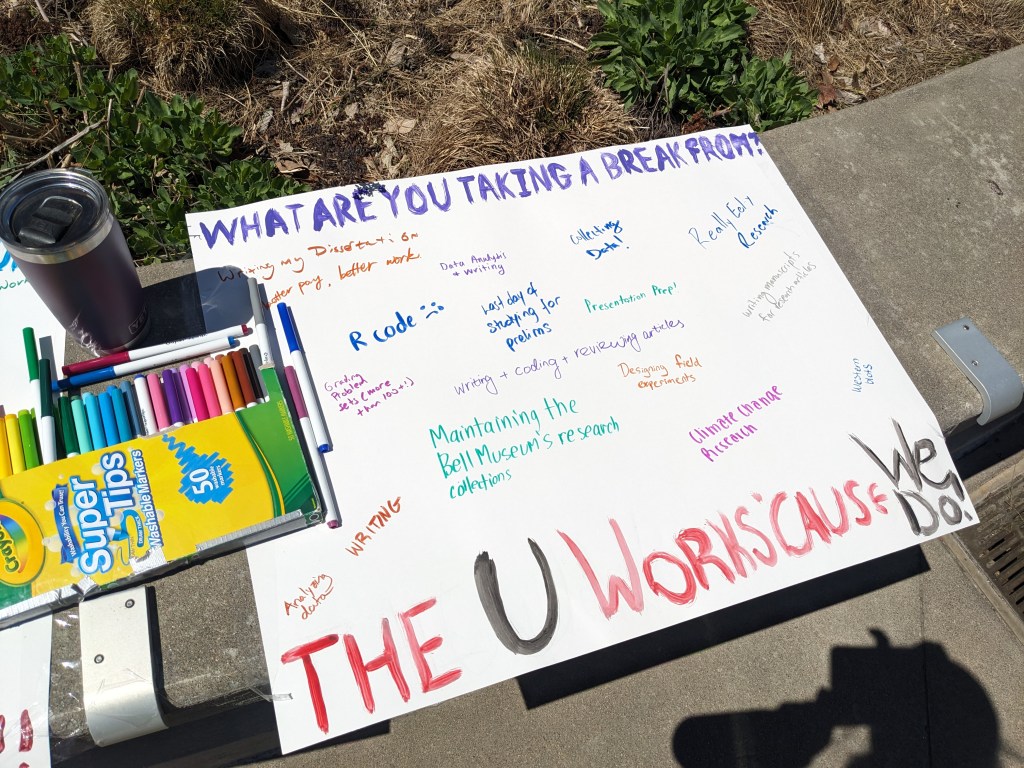 WHAT ARE YOU TAKING A BREAK FROM?
Writing my Dissertation
better pay, better work.
Data Analysis
+ Writing
Collecting
Data!
Really Early
Research
R code
Last day of
studying for
prelims
Presentation Prep!
Writing manuscripts
for research articles
Grading
Problem
sets (more
than 100+!)
writing + coding + reviewing articles
Designing field
experiments
Western
blots
Maintaining the
Bell Museum's research
collections
Climate Change
Research
WRITING
Analyzing
data
THE U WORKS 'CAUSE
We
Do!
Crayola
Super
Tips
Washable Markers
50
YETI